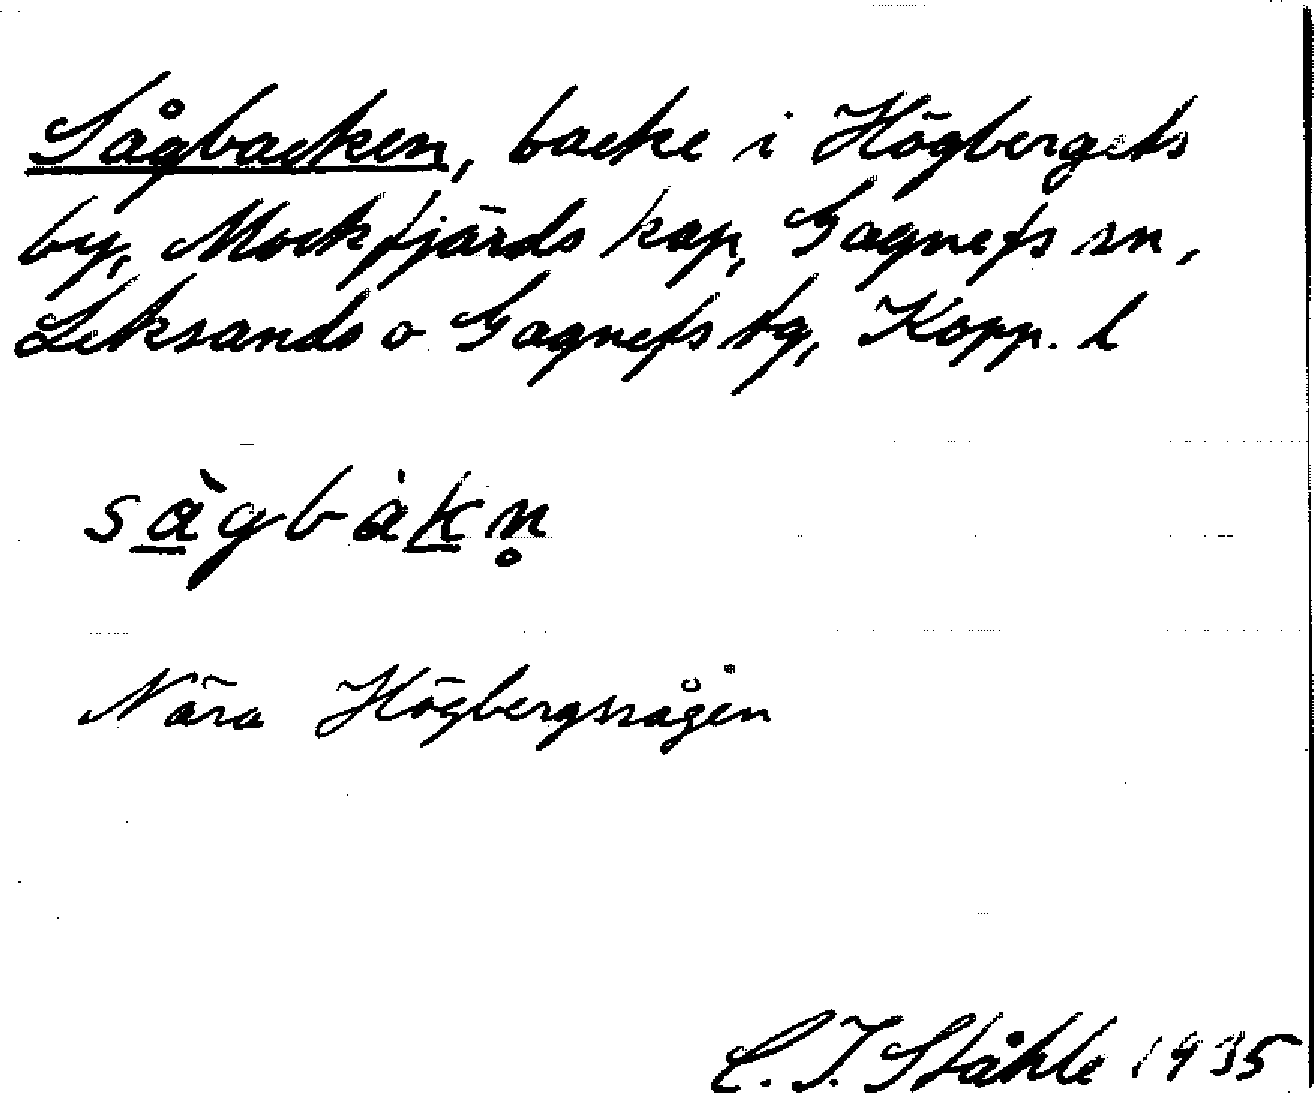 Sågbacken, backe i Högbergets
by, Mockfjärds kap, Gagnefs sn,
Leksands o Gagnefs tg, Kopp. l
sàgbàkn̥
Nära Högbergssågen
C. I. Ståhle 1935